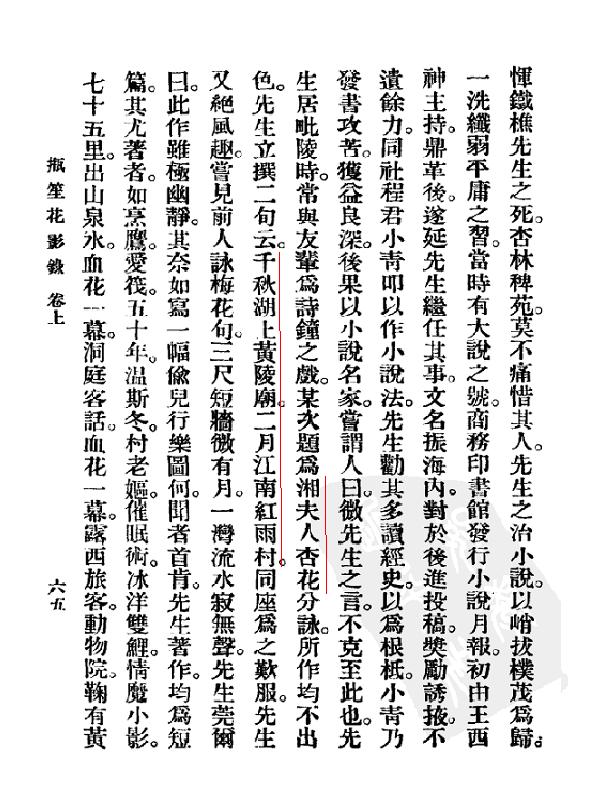 惲鐵樵先生之死。杏林稗苑。莫不痛惜其人。先生之治小說。以峭拔樸茂爲歸。
一洗纖弱平庸之習。當時有大說之號。商務印書館發行小說月報。初由王西
神主持。鼎革後。遂延先生繼任其事。文名振海內。對於後進投稿。獎勵誘掖。不
遺餘力。同社程君小靑叩以作小說法。先生勸其多讀經史。以爲根柢。小靑乃
發書攻苦。獲益良深。後果以小說名家。嘗謂人曰。微先生之言。不克至此也。先
生居毗陵時。常與友輩爲詩鐘之戲。某次題爲湘夫人杏花分詠。所作均不出
色。先生立撰二句云。千秋湖上黃陵廟。二月江南紅雨村。同座爲之歎服。先生
又絕風趣。嘗見前人詠梅花句。三尺短牆微有月。一灣流水寂無聲。先生莞爾
曰。此作雖極幽靜。其奈如寫一幅偸兒行樂圖何。聞者首肯。先生著作。均爲短
篇。其尤著者。如烹鷹。愛筏。五十年。温斯冬。村老嫗。催眠術。冰洋雙鯉。情魔小影。
七十五里。出山泉水。血花一幕。洞庭客話。血花一幕。露西旅客。動物院。鞠有黃
瓶笙花影錄 卷上
六五